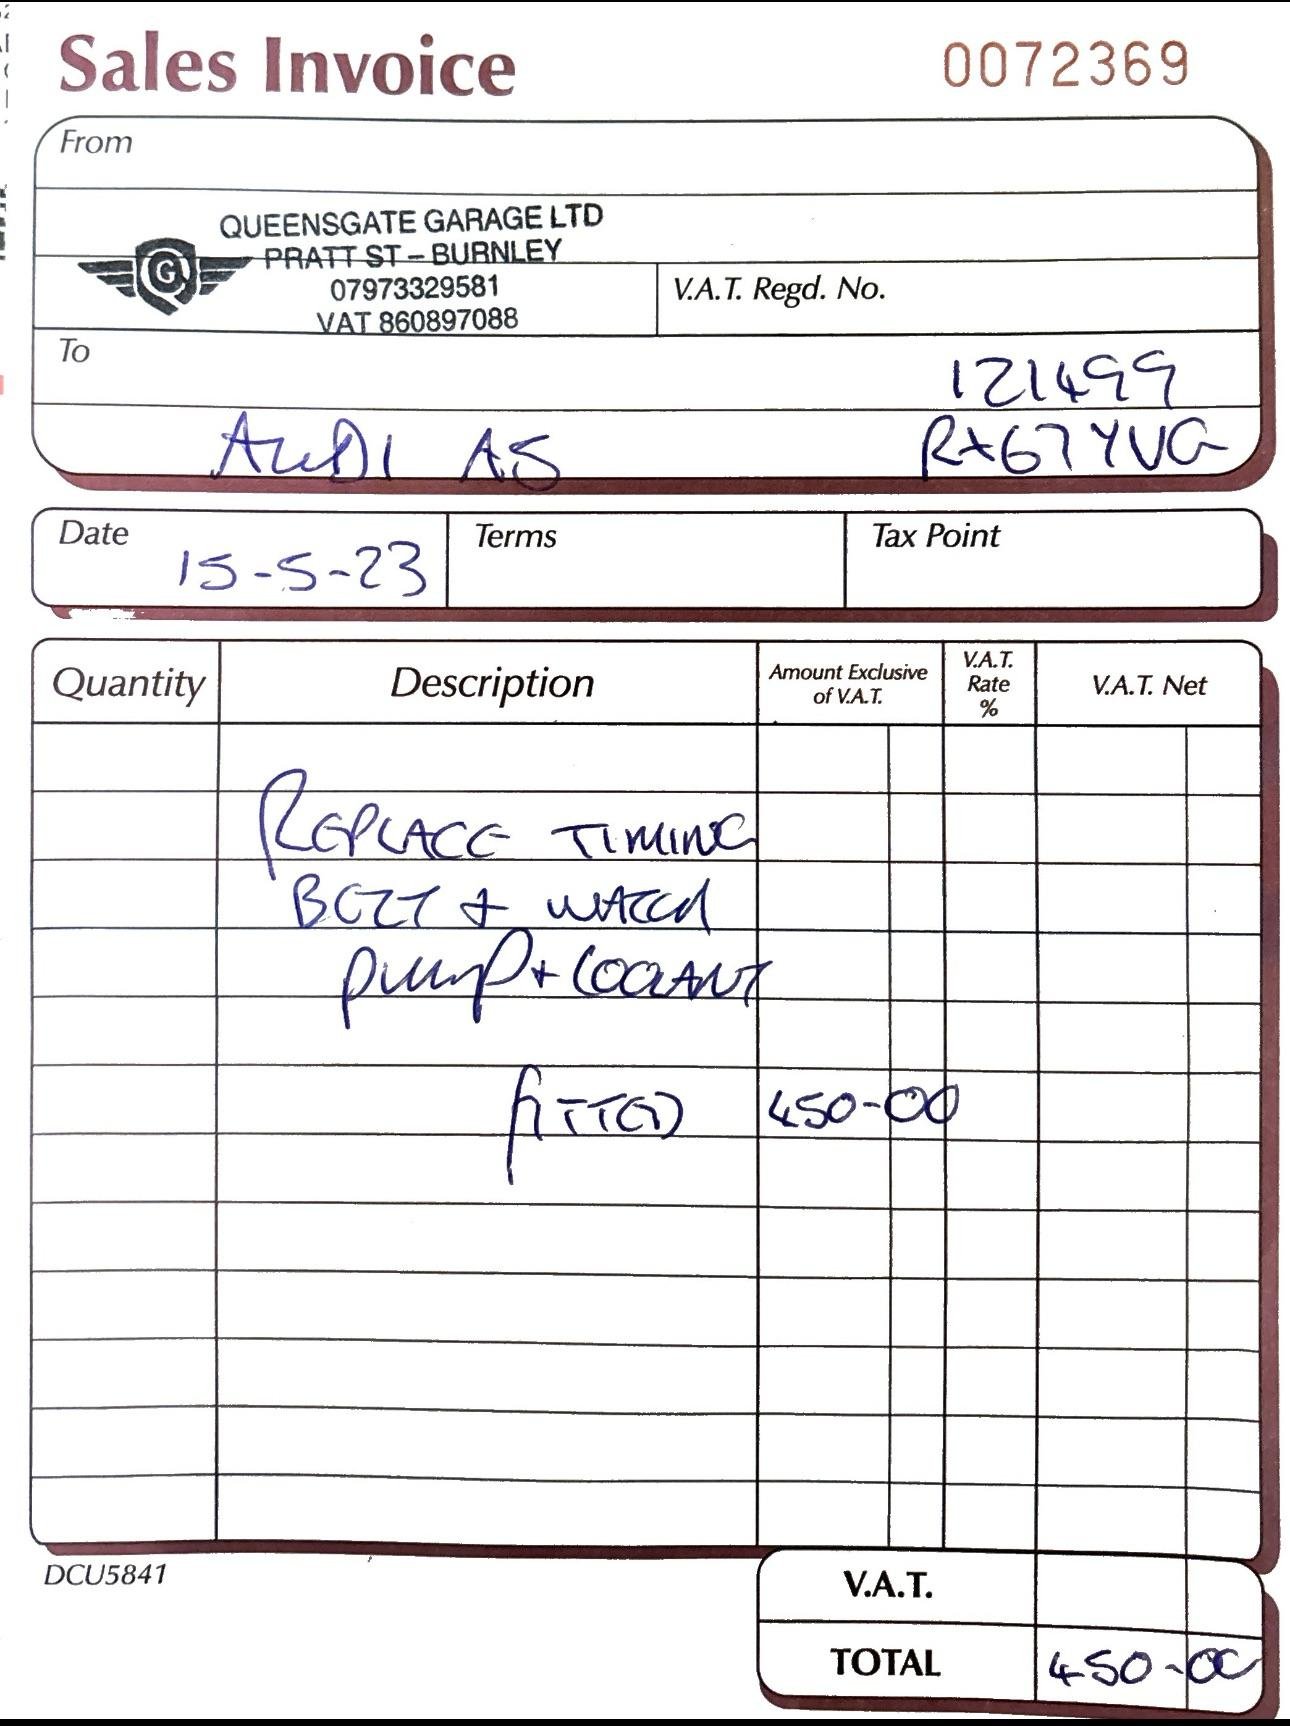 Sales Invoice 0072369
From
QUEENSGATE GARAGE LTD
PRATT ST - BURNLEY
07973329581
VAT 860897088
G
V.A.T. Regd. No.
To
121499
AUDI A5 RX67YVG
Date 15-5-23 Terms Tax Point
Quantity Description Amount Exclusive of V.A.T. V.A.T. Rate % V.A.T. Net
REPLACE TIMING
BELT + WATER
PUMP + COOLANT
FITTED 450-00
DCU5841
V.A.T.
TOTAL 450-00